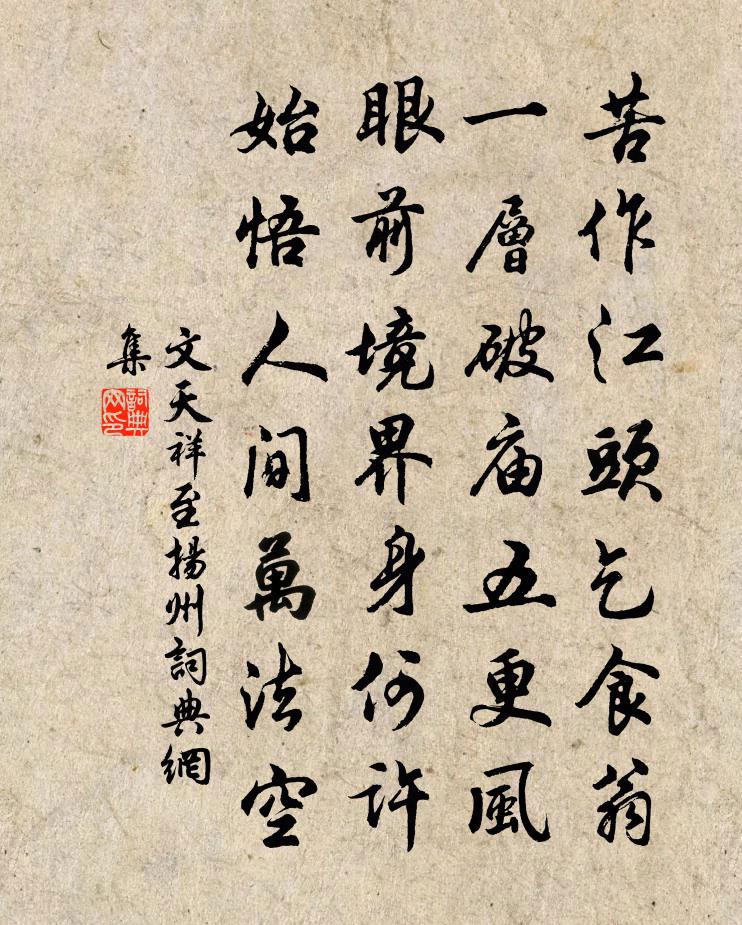 苦作江頭乞食翁
一層破庙五更風
眼前境界身何許
始悟人间萬法空
文天祥至揚州詞典網
集
詞典
网印